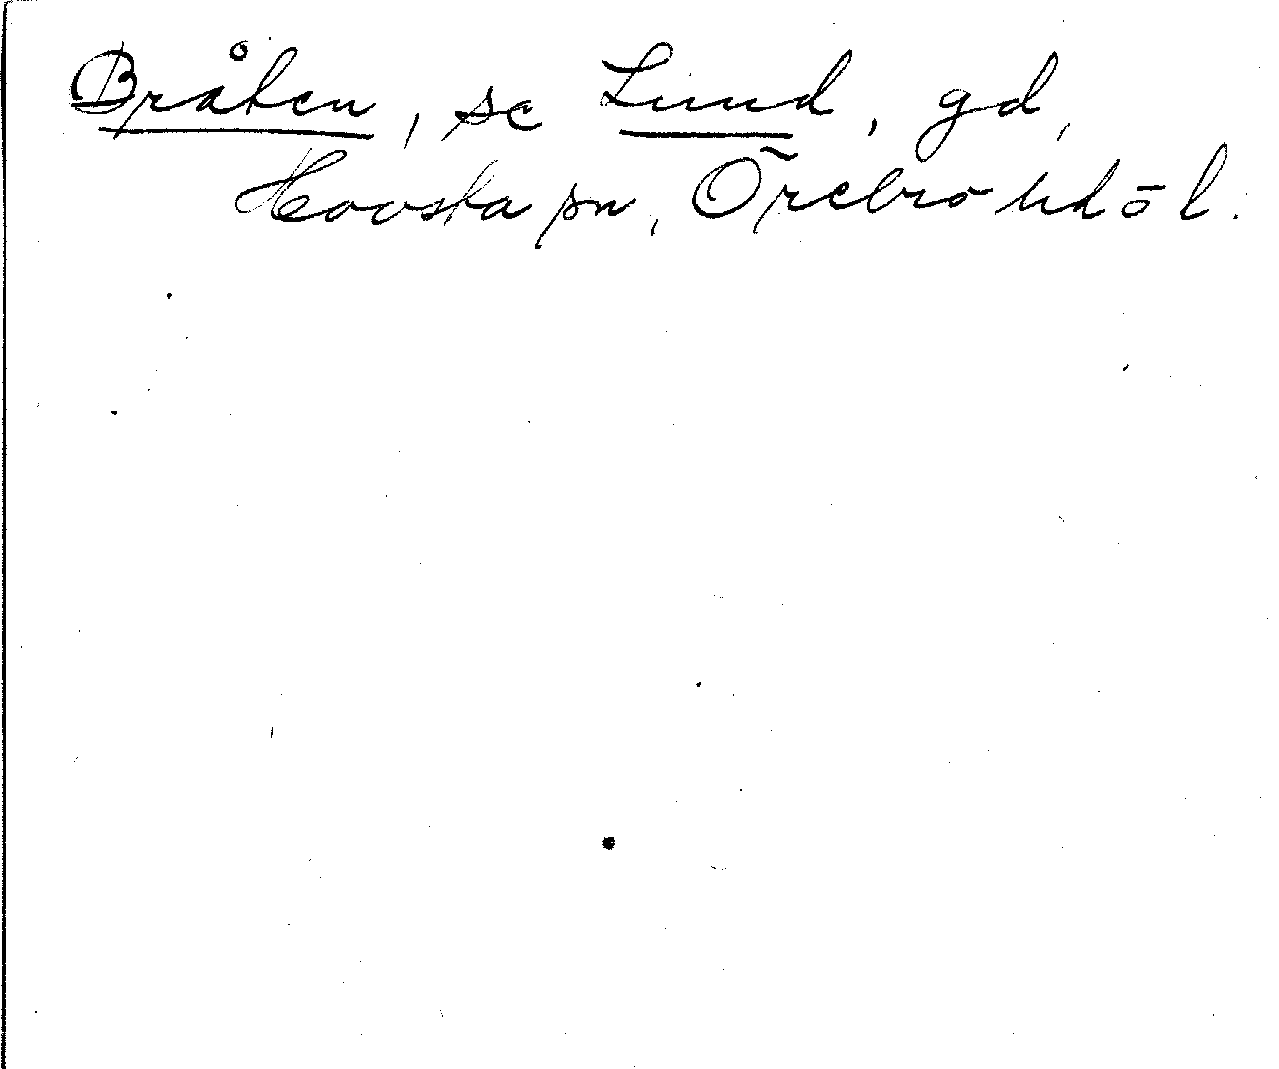 Bråten, se Lund, gd,
Hovsta sn, Örebro hd ö l.